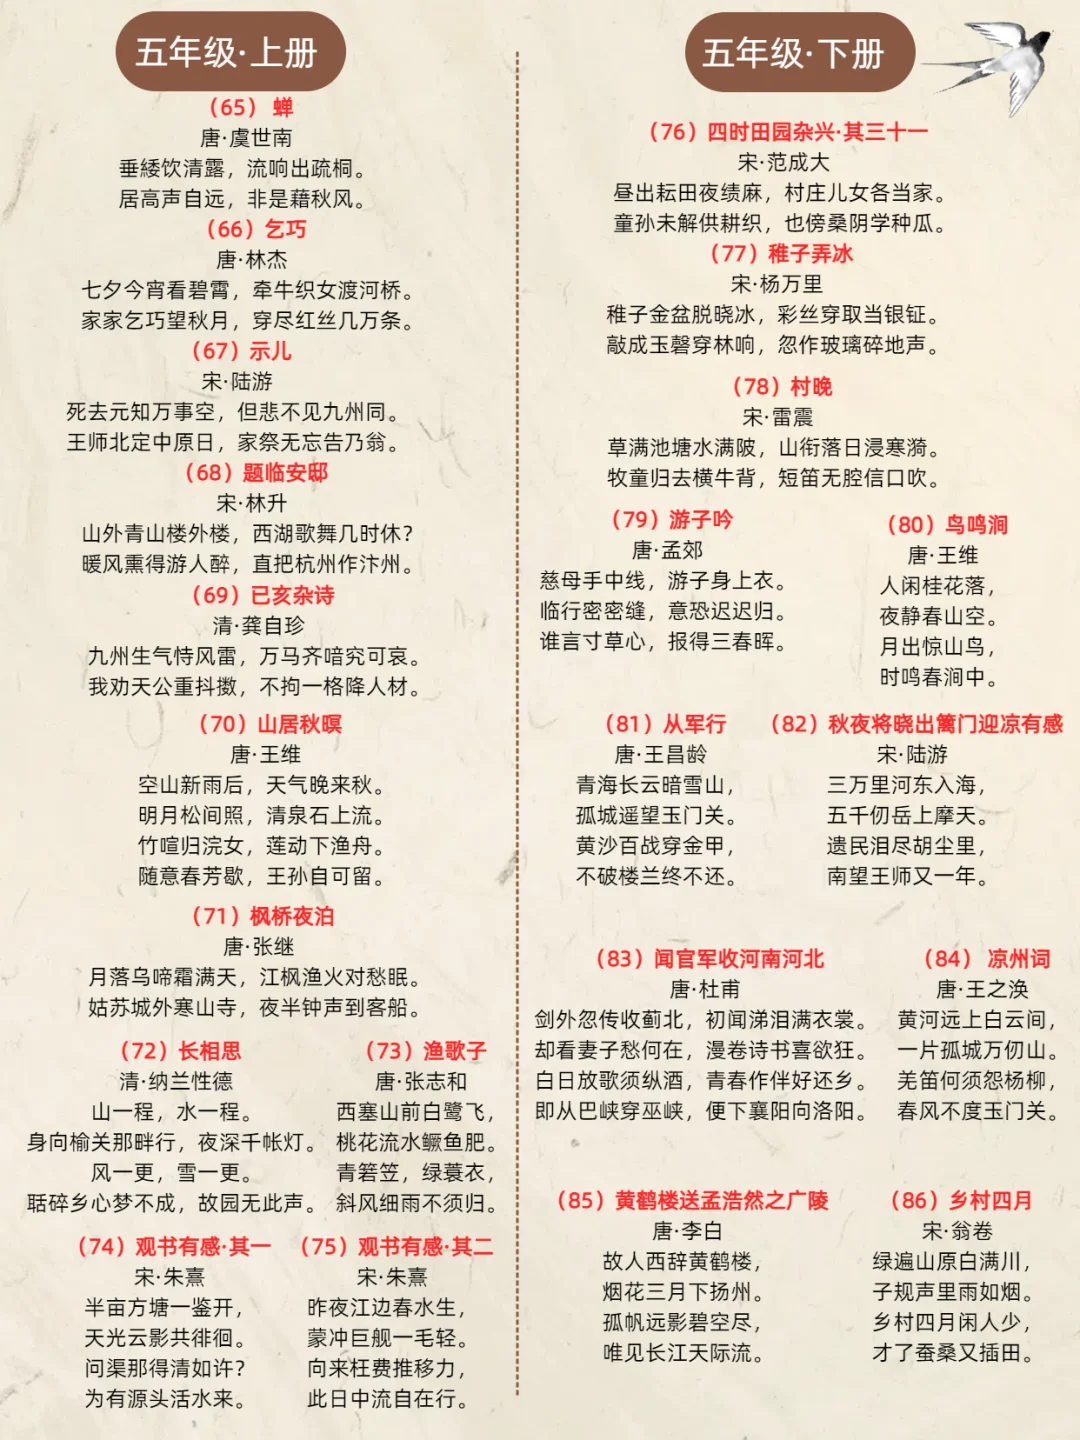 五年级·上册
（65） 蝉
唐·虞世南
垂緌饮清露，流响出疏桐。
居高声自远，非是藉秋风。
（66）乞巧
唐·林杰
七夕今宵看碧霄，牵牛织女渡河桥。
家家乞巧望秋月，穿尽红丝几万条。
（67）示儿
宋·陆游
死去元知万事空，但悲不见九州同。
王师北定中原日，家祭无忘告乃翁。
（68）题临安邸
宋·林升
山外青山楼外楼，西湖歌舞几时休？
暖风熏得游人醉，直把杭州作汴州。
（69）已亥杂诗
清·龚自珍
九州生气恃风雷，万马齐喑究可哀。
我劝天公重抖擞，不拘一格降人材。
（70）山居秋暝
唐·王维
空山新雨后，天气晚来秋。
明月松间照，清泉石上流。
竹喧归浣女，莲动下渔舟。
随意春芳歇，王孙自可留。
（71）枫桥夜泊
唐·张继
月落乌啼霜满天，江枫渔火对愁眠。
姑苏城外寒山寺，夜半钟声到客船。
（72）长相思
清·纳兰性德
山一程，水一程。
身向榆关那畔行，夜深千帐灯。
风一更，雪一更。
聒碎乡心梦不成，故园无此声。
（73）渔歌子
唐·张志和
西塞山前白鹭飞，
桃花流水鳜鱼肥。
青箬笠，绿蓑衣，
斜风细雨不须归。
（74）观书有感·其一
宋·朱熹
半亩方塘一鉴开，
天光云影共徘徊。
问渠那得清如许？
为有源头活水来。
（75）观书有感·其二
宋·朱熹
昨夜江边春水生，
蒙冲巨舰一毛轻。
向来枉费推移力，
此日中流自在行。
五年级·下册
（76）四时田园杂兴·其三十一
宋·范成大
昼出耘田夜绩麻，村庄儿女各当家。
童孙未解供耕织，也傍桑阴学种瓜。
（77）稚子弄冰
宋·杨万里
稚子金盆脱晓冰，彩丝穿取当银钲。
敲成玉磬穿林响，忽作玻璃碎地声。
（78）村晚
宋·雷震
草满池塘水满陂，山衔落日浸寒漪。
牧童归去横牛背，短笛无腔信口吹。
（79）游子吟
唐·孟郊
慈母手中线，游子身上衣。
临行密密缝，意恐迟迟归。
谁言寸草心，报得三春晖。
（80）鸟鸣涧
唐·王维
人闲桂花落，
夜静春山空。
月出惊山鸟，
时鸣春涧中。
（81）从军行
唐·王昌龄
青海长云暗雪山，
孤城遥望玉门关。
黄沙百战穿金甲，
不破楼兰终不还。
（82）秋夜将晓出篱门迎凉有感
宋·陆游
三万里河东入海，
五千仞岳上摩天。
遗民泪尽胡尘里，
南望王师又一年。
（83）闻官军收河南河北
唐·杜甫
剑外忽传收蓟北，初闻涕泪满衣裳。
却看妻子愁何在，漫卷诗书喜欲狂。
白日放歌须纵酒，青春作伴好还乡。
即从巴峡穿巫峡，便下襄阳向洛阳。
（84） 凉州词
唐·王之涣
黄河远上白云间，
一片孤城万仞山。
羌笛何须怨杨柳，
春风不度玉门关。
（85）黄鹤楼送孟浩然之广陵
唐·李白
故人西辞黄鹤楼，
烟花三月下扬州。
孤帆远影碧空尽，
唯见长江天际流。
（86）乡村四月
宋·翁卷
绿遍山原白满川，
子规声里雨如烟。
乡村四月闲人少，
才了蚕桑又插田。